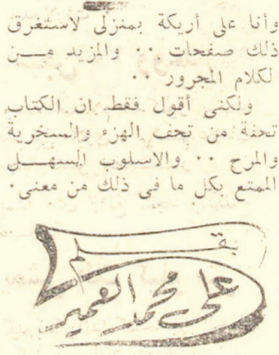 وأنا على أريكة بمنزلى لاستغرق
ذلك صفحات ٠٠ والمزيد مــن
لكلام المجرور ٠٠
ولكنى أقول فقط ان الكتاب
تحفة من تحف الهزء والسخرية
والمرح ٠٠ والاسلوب السهــل
الممتع بكل ما فى ذلك من معنى٠
بقــلم
على محمد العمير